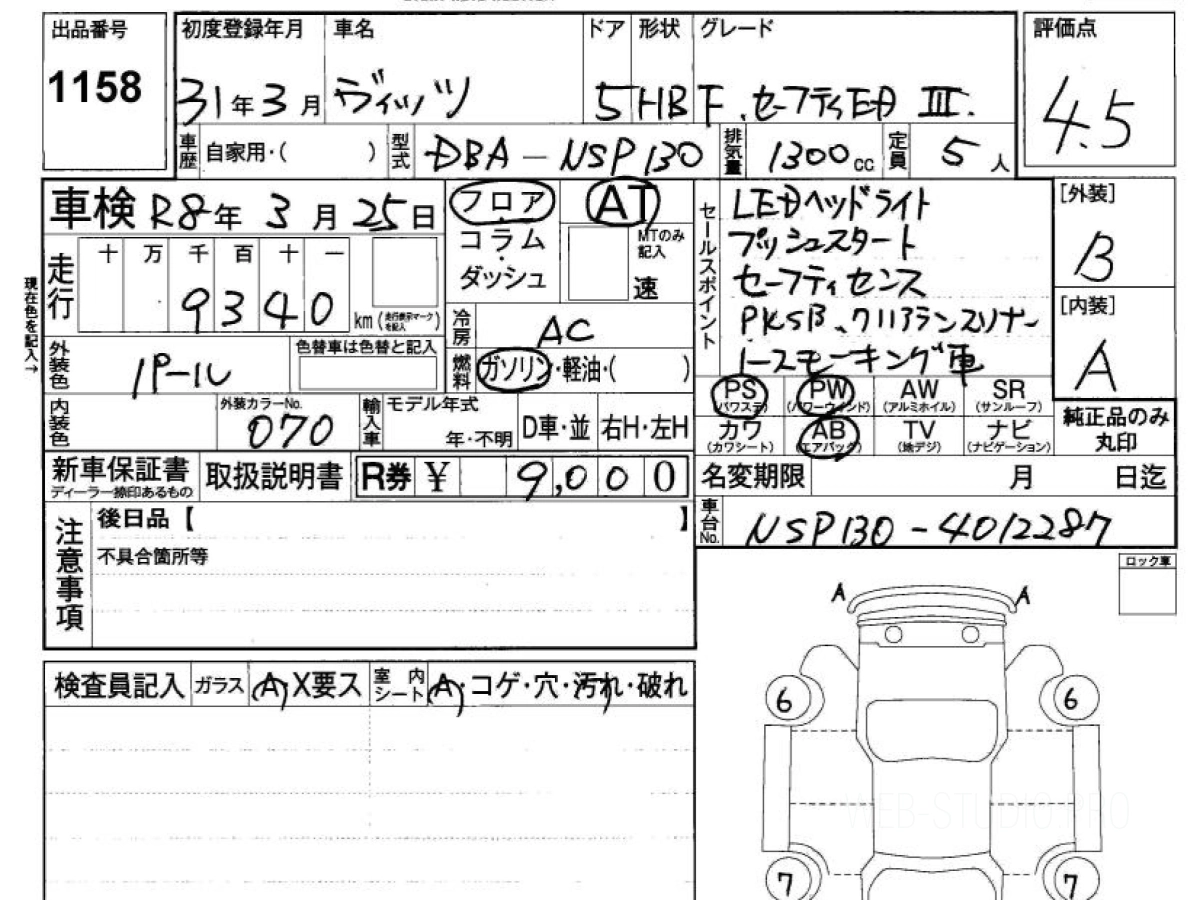 出品番号
1158
初度登録年月 車名 ドア 形状 グレード
31年3月 ヴィッツ 5 HB F.セーフティEDⅢ.
評価点
4.5
車歴 自家用・( ) 型式 DBA-NSP130 排気量 1300cc 定員 5人
車検 R8年3月25日
現在色を記入→
走行 十 万 千 百 十 一
9340 km (走行表示マークを記入)
フロア
コラム
・
ダッシュ
AT
MTのみ記入
速
冷房 AC
燃料 ガソリン・軽油・( )
外装色 パール
色替車は色替と記入
内装色 外装カラーNo. 070
輸入車 モデル年式 年・不明 D車・並 右H・左H
セールスポイント
LEDヘッドライト
プッシュスタート
セーフティセンス
PKSB、クリアランスソナー
ノースモーキング車
[外装]
B
[内装]
A
PS (パワステ) PW (パワーウィンド) AW (アルミホイル) SR (サンルーフ)
カワ (カワシート) AB (エアバッグ) TV (地デジ) ナビ (ナビゲーション)
純正品のみ
丸印
新車保証書 ディーラー捺印あるもの 取扱説明書 R券 ¥ 9,000
名変期限 月 日迄
車台No. NSP130-4012287
注意事項
後日品【 】
不具合箇所等
ロック車
検査員記入 ガラス A・X要ス 室内シート A・コゲ・穴・汚れ・破れ
A A
6 6
7 7
WEB-STUDIO.PRO